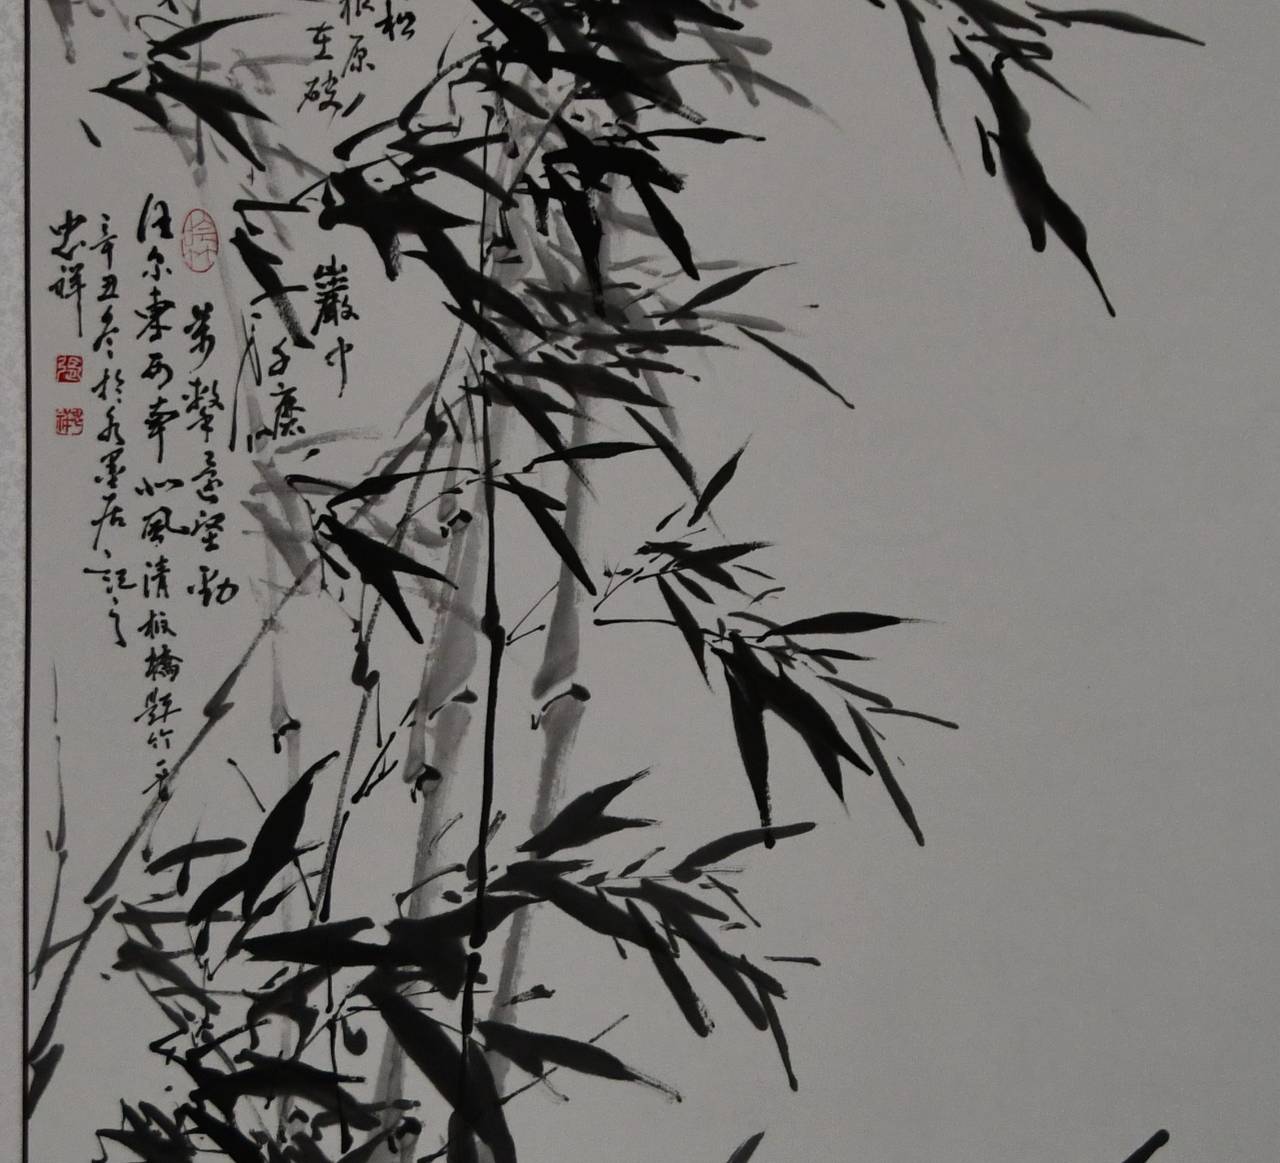 松
根原
在破
巖中
千磨
萬擊還坚劲
任尔東西南北風清板橋題竹一首
辛丑冬於水墨居記之
忠祥